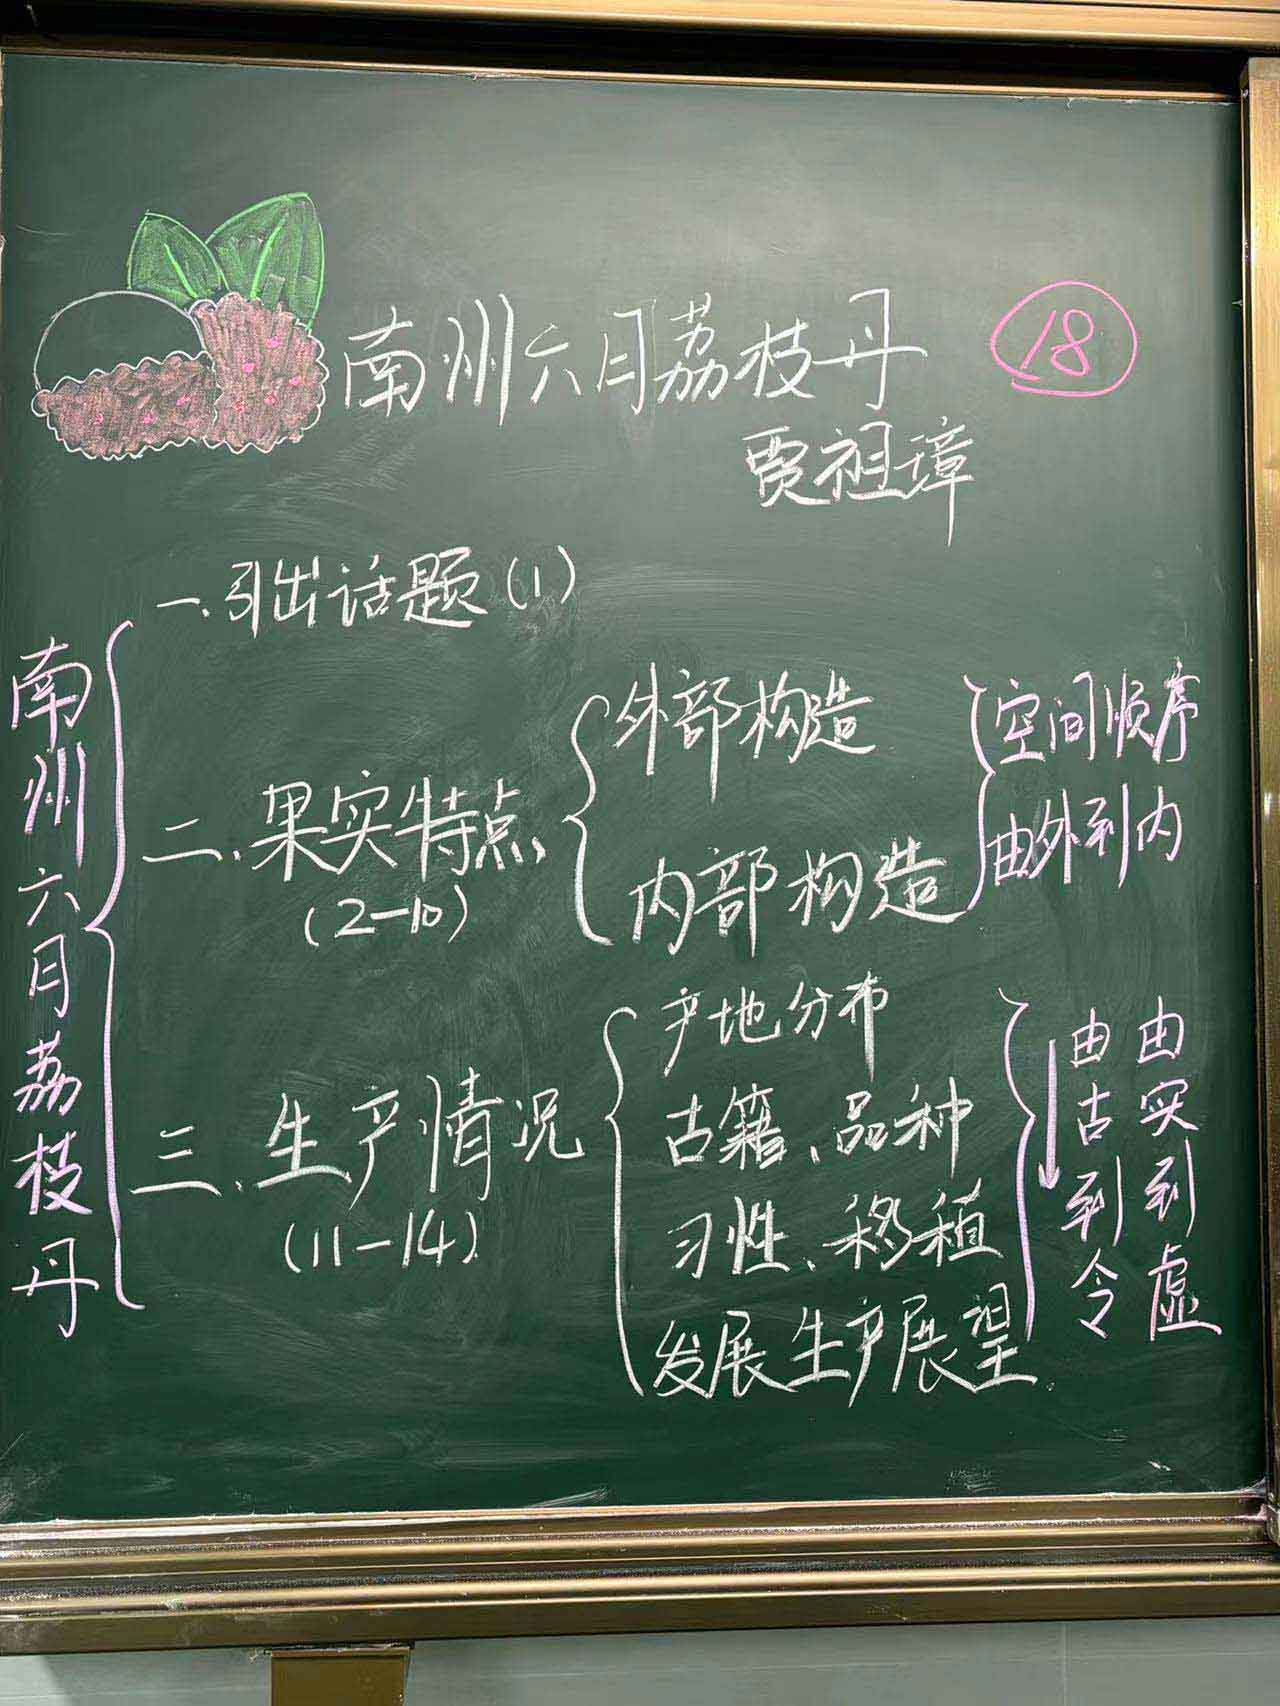 南州六月荔枝丹
18
贾祖璋
南州六月荔枝丹
一、引出话题(1)
二、果实特点
(2—10)
外部构造
内部构造
空间顺序
由外到内
三、生产情况
(11—14)
产地分布
古籍、品种
习性、移植
发展生产展望
由古到今
由实到虚